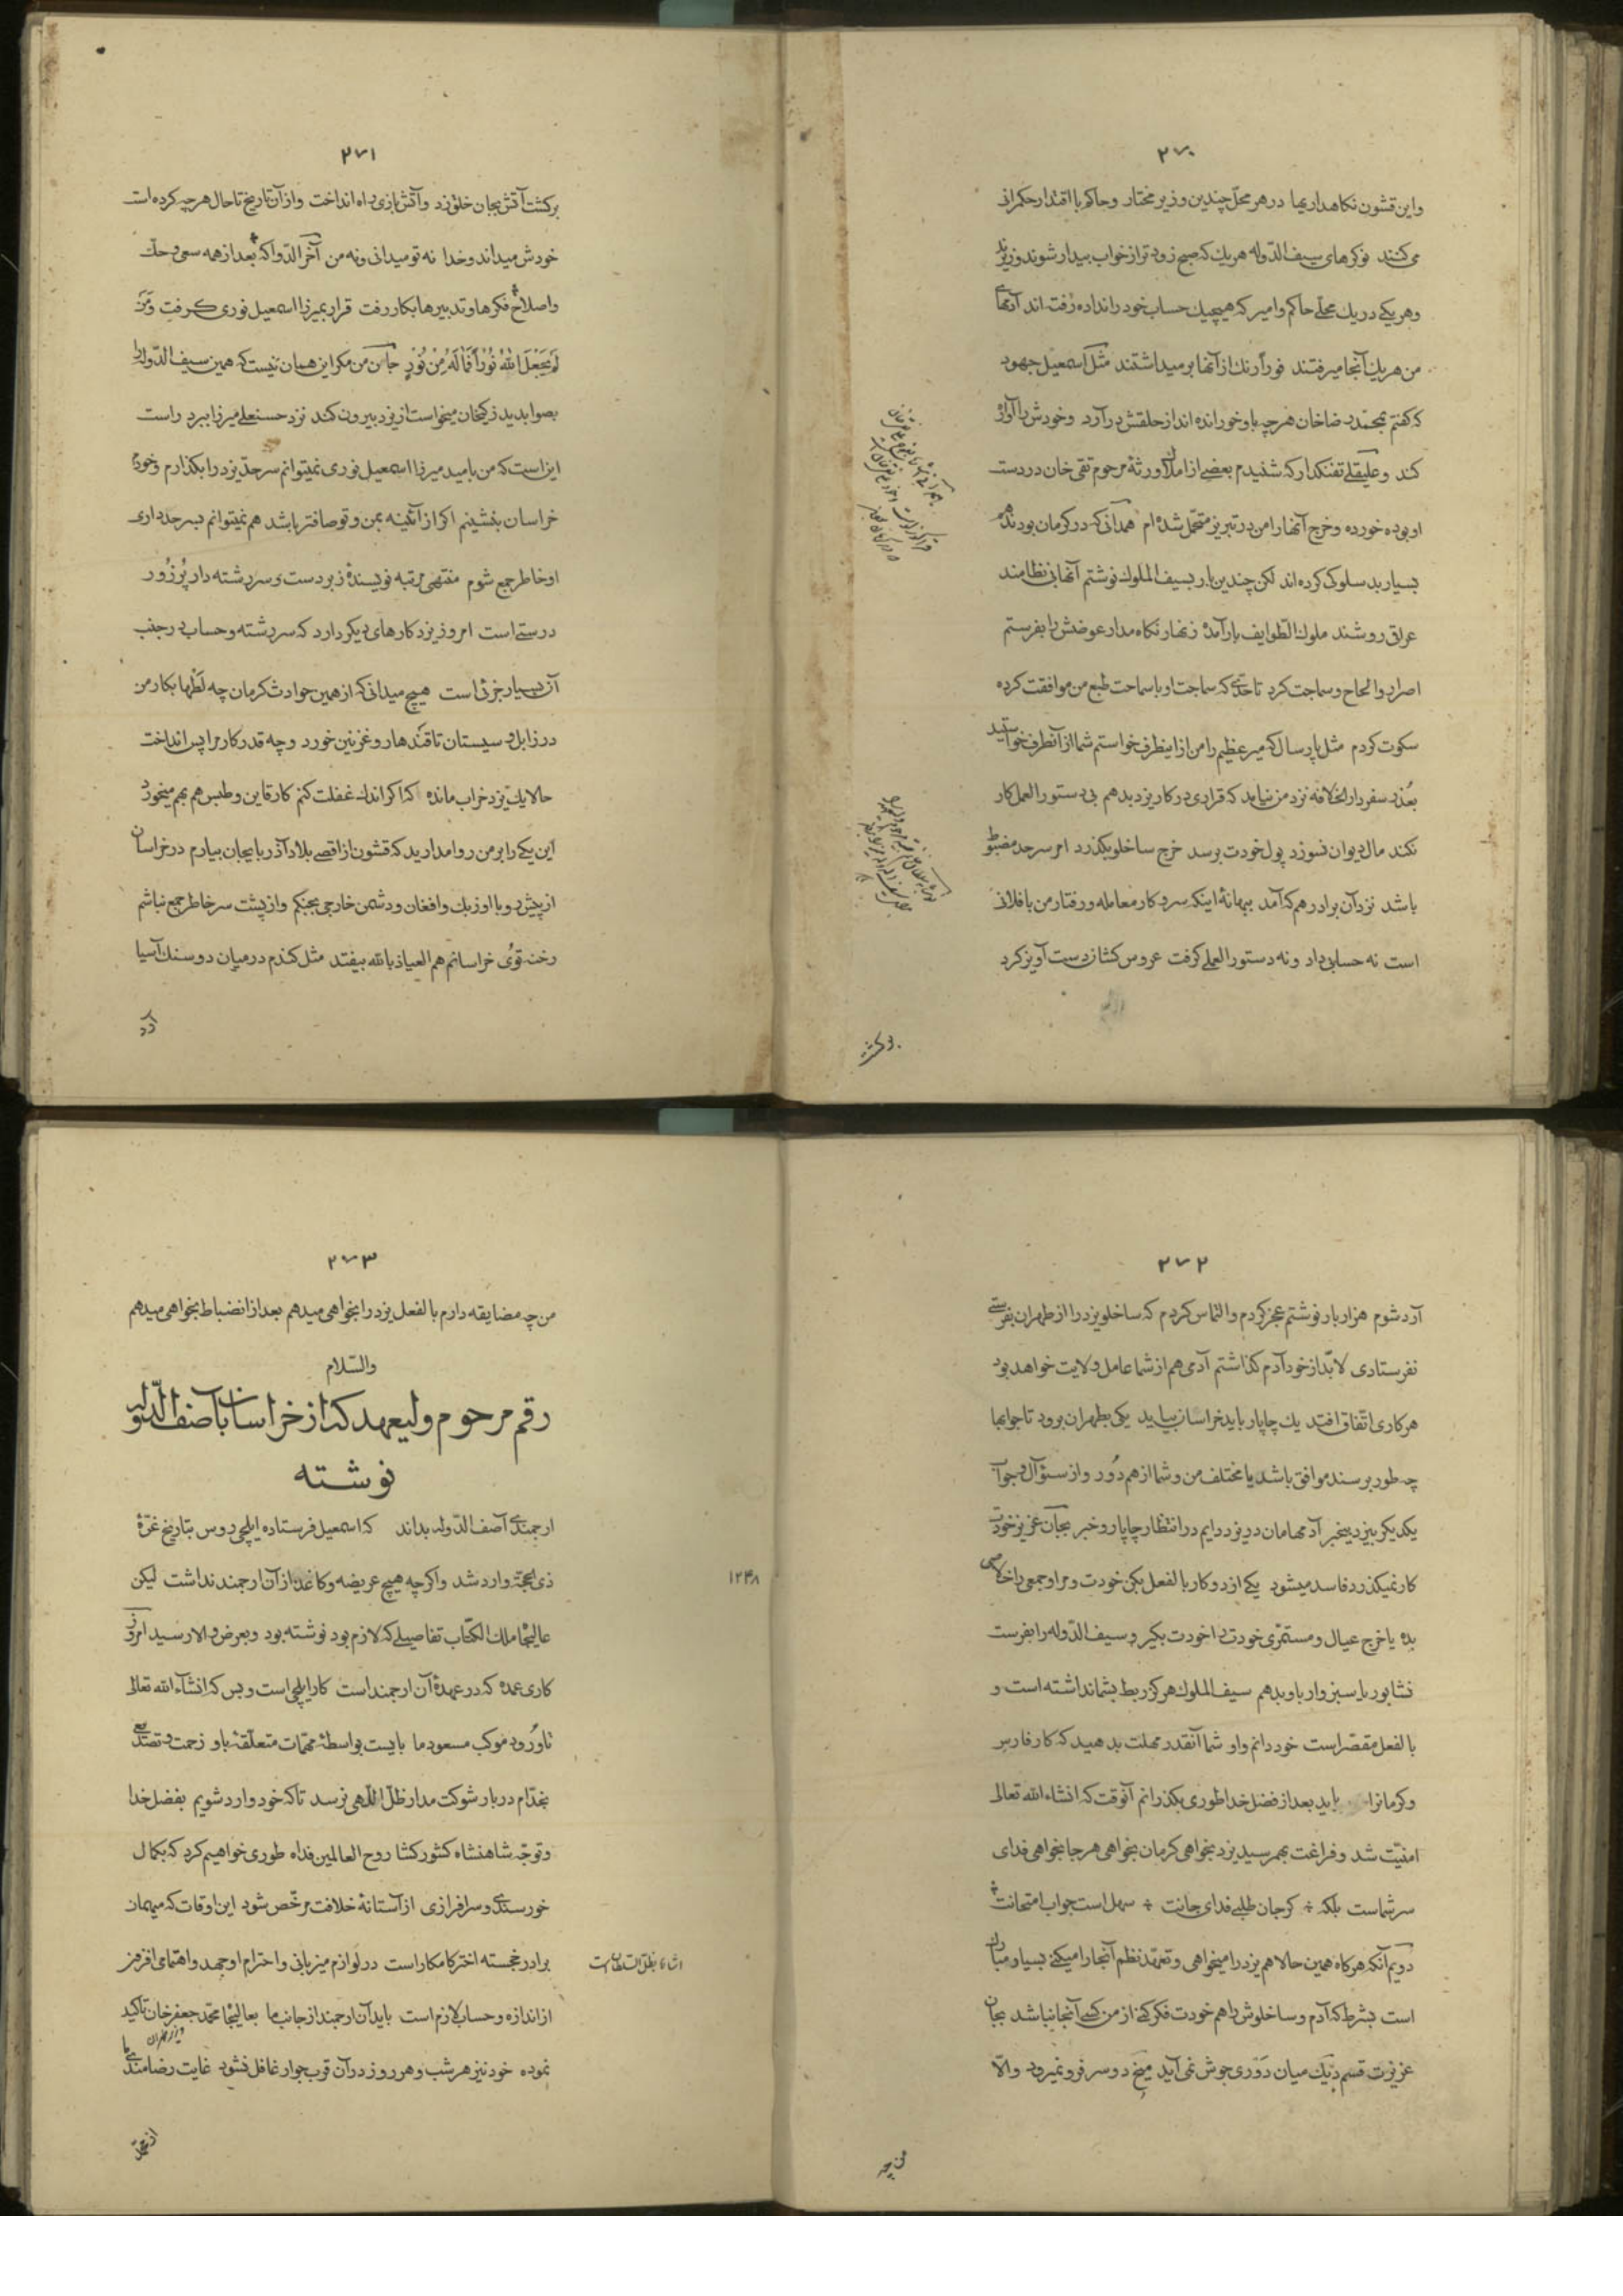 ۲۷۰
و این قشون نکاهداریها در هر محل چندین وزیر مختار و حاکم با اقتدار حکمرانی
می کنند نوکرهای سیف الدوله هر یک که صبح زودتر از خواب بیدار شوند وزیرند
و هر یکی در یک محلی حاکم و امیر که هیچیک حساب خود را نداده رفته اند آدمهای
من هر یک آنجا میرفتند فوراً رنک از آنها برمیداشتند مثل اسمعیل جهود
که کفتم بمحمد رضاخان هر چه باو خورانده اند از حلقش درآرد و خودش را آواره
کند و علیقلی تفنکدار که شنیدم بعضی از املاک ورثهٔ مرحوم تقی خان در دست
او بوده خورده و خرج آنها را من در تبریز متحمل شده ام همدانی که در کرمان بودند هم
بسیار بد سلوک کرده اند لکن چندین بار بسیف الملوک نوشتم آنها بی نظامند
عراقی روشند ملوک الطوایف بارآمده زنهار نکاه مدار عوضش را بفرستم
اصرار و الحاح و سماجت کرد تا حدی که سماجت او با سماحت طبع من موافقت کرده
سکوت کردم مثل پارسال که میر عظیم را من از اینطرف خواستم شما از آنطرف خواستید
بعذر سفر دار الخلافه نزد من نیامد که قراری در کار یزد بدهم بی دستور العمل کار
نکند مال دیوان نسوزد پول خودت برسد خرج ساخلو بکذرد امر سرحد مضبوط
باشد نزد آن برادر هم که آمد ببهانهٔ اینکه سر و کار معامله و رفتار من با فلانی
است نه حسابی داد و نه دستور العملی کرفت عروس کشان دست آویز کرد
برکشت
۲۷۱
برکشت آتش بجان خلق زد و آتش بازی براه انداخت و از آن تاریخ تا حال هر چه کرده است
خودش میداند و خدا نه تو میدانی و نه من آخر الدوا که بعد از همه سعی و حک
و اصلاح فکرها و تدبیرها بکار رفت قرار بمیرزا اسمعیل نوری کرفت وَ مَنْ
لَمْ یَجْعَلِ اللّٰهُ نُوراً فَمَا لَهُ مِنْ نُورٍ جان من مکر این همان نیست که همین سیف الدوله را
بصوابدید زکیخان میخواست از یزد بیرون کند نزد حسنعلی میرزا ببرد راست
این است که من بامید میرزا اسمعیل نوری نمیتوانم سرحد یزد را بکذارم و خود در
خراسان بنشینم اکر از آئینه بمن و تو صافتر باشد هم نمیتوانم بسرحدداری
او خاطر جمع شوم منتهی مرتبه نویسندهٔ زبردست و سررشته دار پُرزُور
درستی است امروز یزد کارهای دیکر دارد که سررشته و حساب در جنب
آن بسیار جزئی است هیچ میدانی که از همین حوادث کرمان چه لطمها بکار من
در زابل و سیستان تا قندهار و غزنین خورد و چه قدر کار مرا پس انداخت
حالا یک یزد خراب مانده که اکر اندک غفلت کنم کار قاین و طبس هم بهم میخورد
این یکی را بر من روا مدارید که قشون از اقصی بلاد آذربایجان بیارم در خراسان
از پیش رو با اوزبک و افغان و دشمن خارجی بجنکم و از پشت سر خاطر جمع نباشم
رخنه توی خراسانم هم العیاذ بالله بیفتد مثل کندم در میان دو سنک آسیا
آرد
۲۷۲
آرد شوم هزار بار نوشتم عجز کردم و التماس کردم که ساخلو یزد را از طهران بفرستی
نفرستادی لابد از خود آدم کذاشتم آدمی هم از شما عامل ولایت خواهد بود
هر کاری اتفاق افتد یک چاپار باید خراسان بیاید یکی بطهران برود تا جوابها
چه طور برسند موافق باشد یا مختلف من و شما از هم دور و از سئوآل و جواب
یکدیکر بیخبر آدمهامان در یزد دایم در انتظار چاپار و خبر بجان عزیز خودت
کار نمیکذرد فاسد میشود یکی از دو کار بالفعل بکن خودت و مرا و جمعی را خلاصی
بده یا خرج عیال و مستمری خودت را خودت بکیر و سیف الدوله را بفرست
نشابور یا سبزوار باو بدهم سیف الملوک هرکز ربط بشما نداشته است و
بالفعل مقصر است خود دانم و او شما آنقدر مهلت بدهید که کار فارس
و کرمان را باید بعد از فضل خدا طوری بکذرانم آنوقت که انشاء الله تعالی
امنیت شد و فراغت بهمرسید یزد بخواهی کرمان بخواهی هر جا بخواهی فدای
سر شماست بلکه ÷ کر جان طلبی فدای جانت ÷ سهل است جواب امتحانت ÷
دویم آنکه هرکاه همین حالا هم یزد را میخواهی و تعهد نظم آنجا را میکنی بسیار مبارک
است بشرط که آدم و ساخلوش را هم خودت فکر کنی از من کسی آنجا نباشد بجان
عزیزت قسم دیک میان دَوری جوش نمی آید میخ دو سر فرو نمیرود و الا
من چه
۲۷۳
من چه مضایقه دارم بالفعل یزد را بخواهی میدهم بعد از انضباط بخواهی میدهم
والسلام
رقم مرحوم ولیعهد که از خراسان بآصف الدوله
نوشته
ارجمندی آصف الدوله بداند که اسمعیل فرستاده ایلچی روس بتاریخ غرّهٔ
ذی الحجة وارد شد و اکرچه هیچ عریضه و کاغذ از آن ارجمند نداشت لیکن
۱۲۴۸
عالیجاه ملک الکتاب تفاصیلی که لازم بود نوشته بود و بعرض والا رسید امروز
کاری عمده که در عهدهٔ آن ارجمند است کار ایلچی است و بس که انشاء الله تعالی
تا ورود موکب مسعود ما بایست بواسطهٔ مهمات متعلقه باو زحمت و تصدیعی
بخدّام دربار شوکت مدار ظل اللهی نرسد تا که خود وارد شویم بفضل خدا
و توجه شاهنشاه کشورکشا روح العالمین فداه طوری خواهیم کرد که بکمال
خورسندی و سرافرازی از آستانهٔ خلافت مرخّص شود این اوقات که میهمان
برادر خجسته اختر کامکار است در لوازم میزبانی و احترام او جهد و اهتمامی افزون تر
از اندازه و حساب لازم است باید آن ارجمند از جانب ما بعالیجاه محمد جعفر خان تاکید
نموده خود نیز هر شب و هر روز در آن قرب جوار غافل نشود غایت رضامندی ما